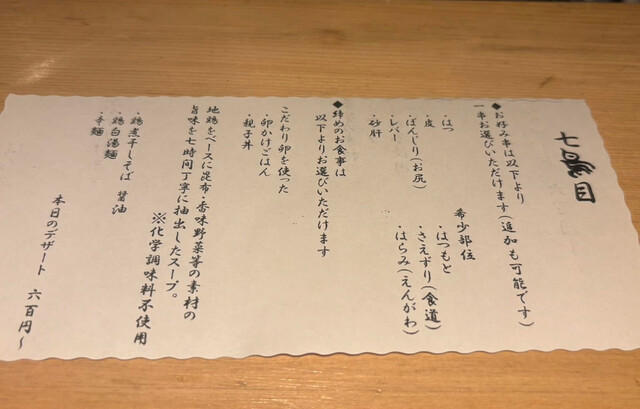 七場目
◆お好み串は以下より
一串お選びいただけます(追加も可能です)
・はつ
・皮
・ぼんじり(お尻)
・レバー
・砂肝
希少部位
・はつもと
・さえずり(食道)
・はらみ(えんがわ)
◆締めのお食事は
以下よりお選びいただけます
こだわり卵を使った
・卵かけごはん
・親子丼
地鶏をベースに昆布・香味野菜等の素材の
旨味を七時間丁寧に抽出したスープ。
※化学調味料不使用
・鶏煮干しそば 醤油
・鶏白湯麺
・辛麺
本日のデザート 六百円〜